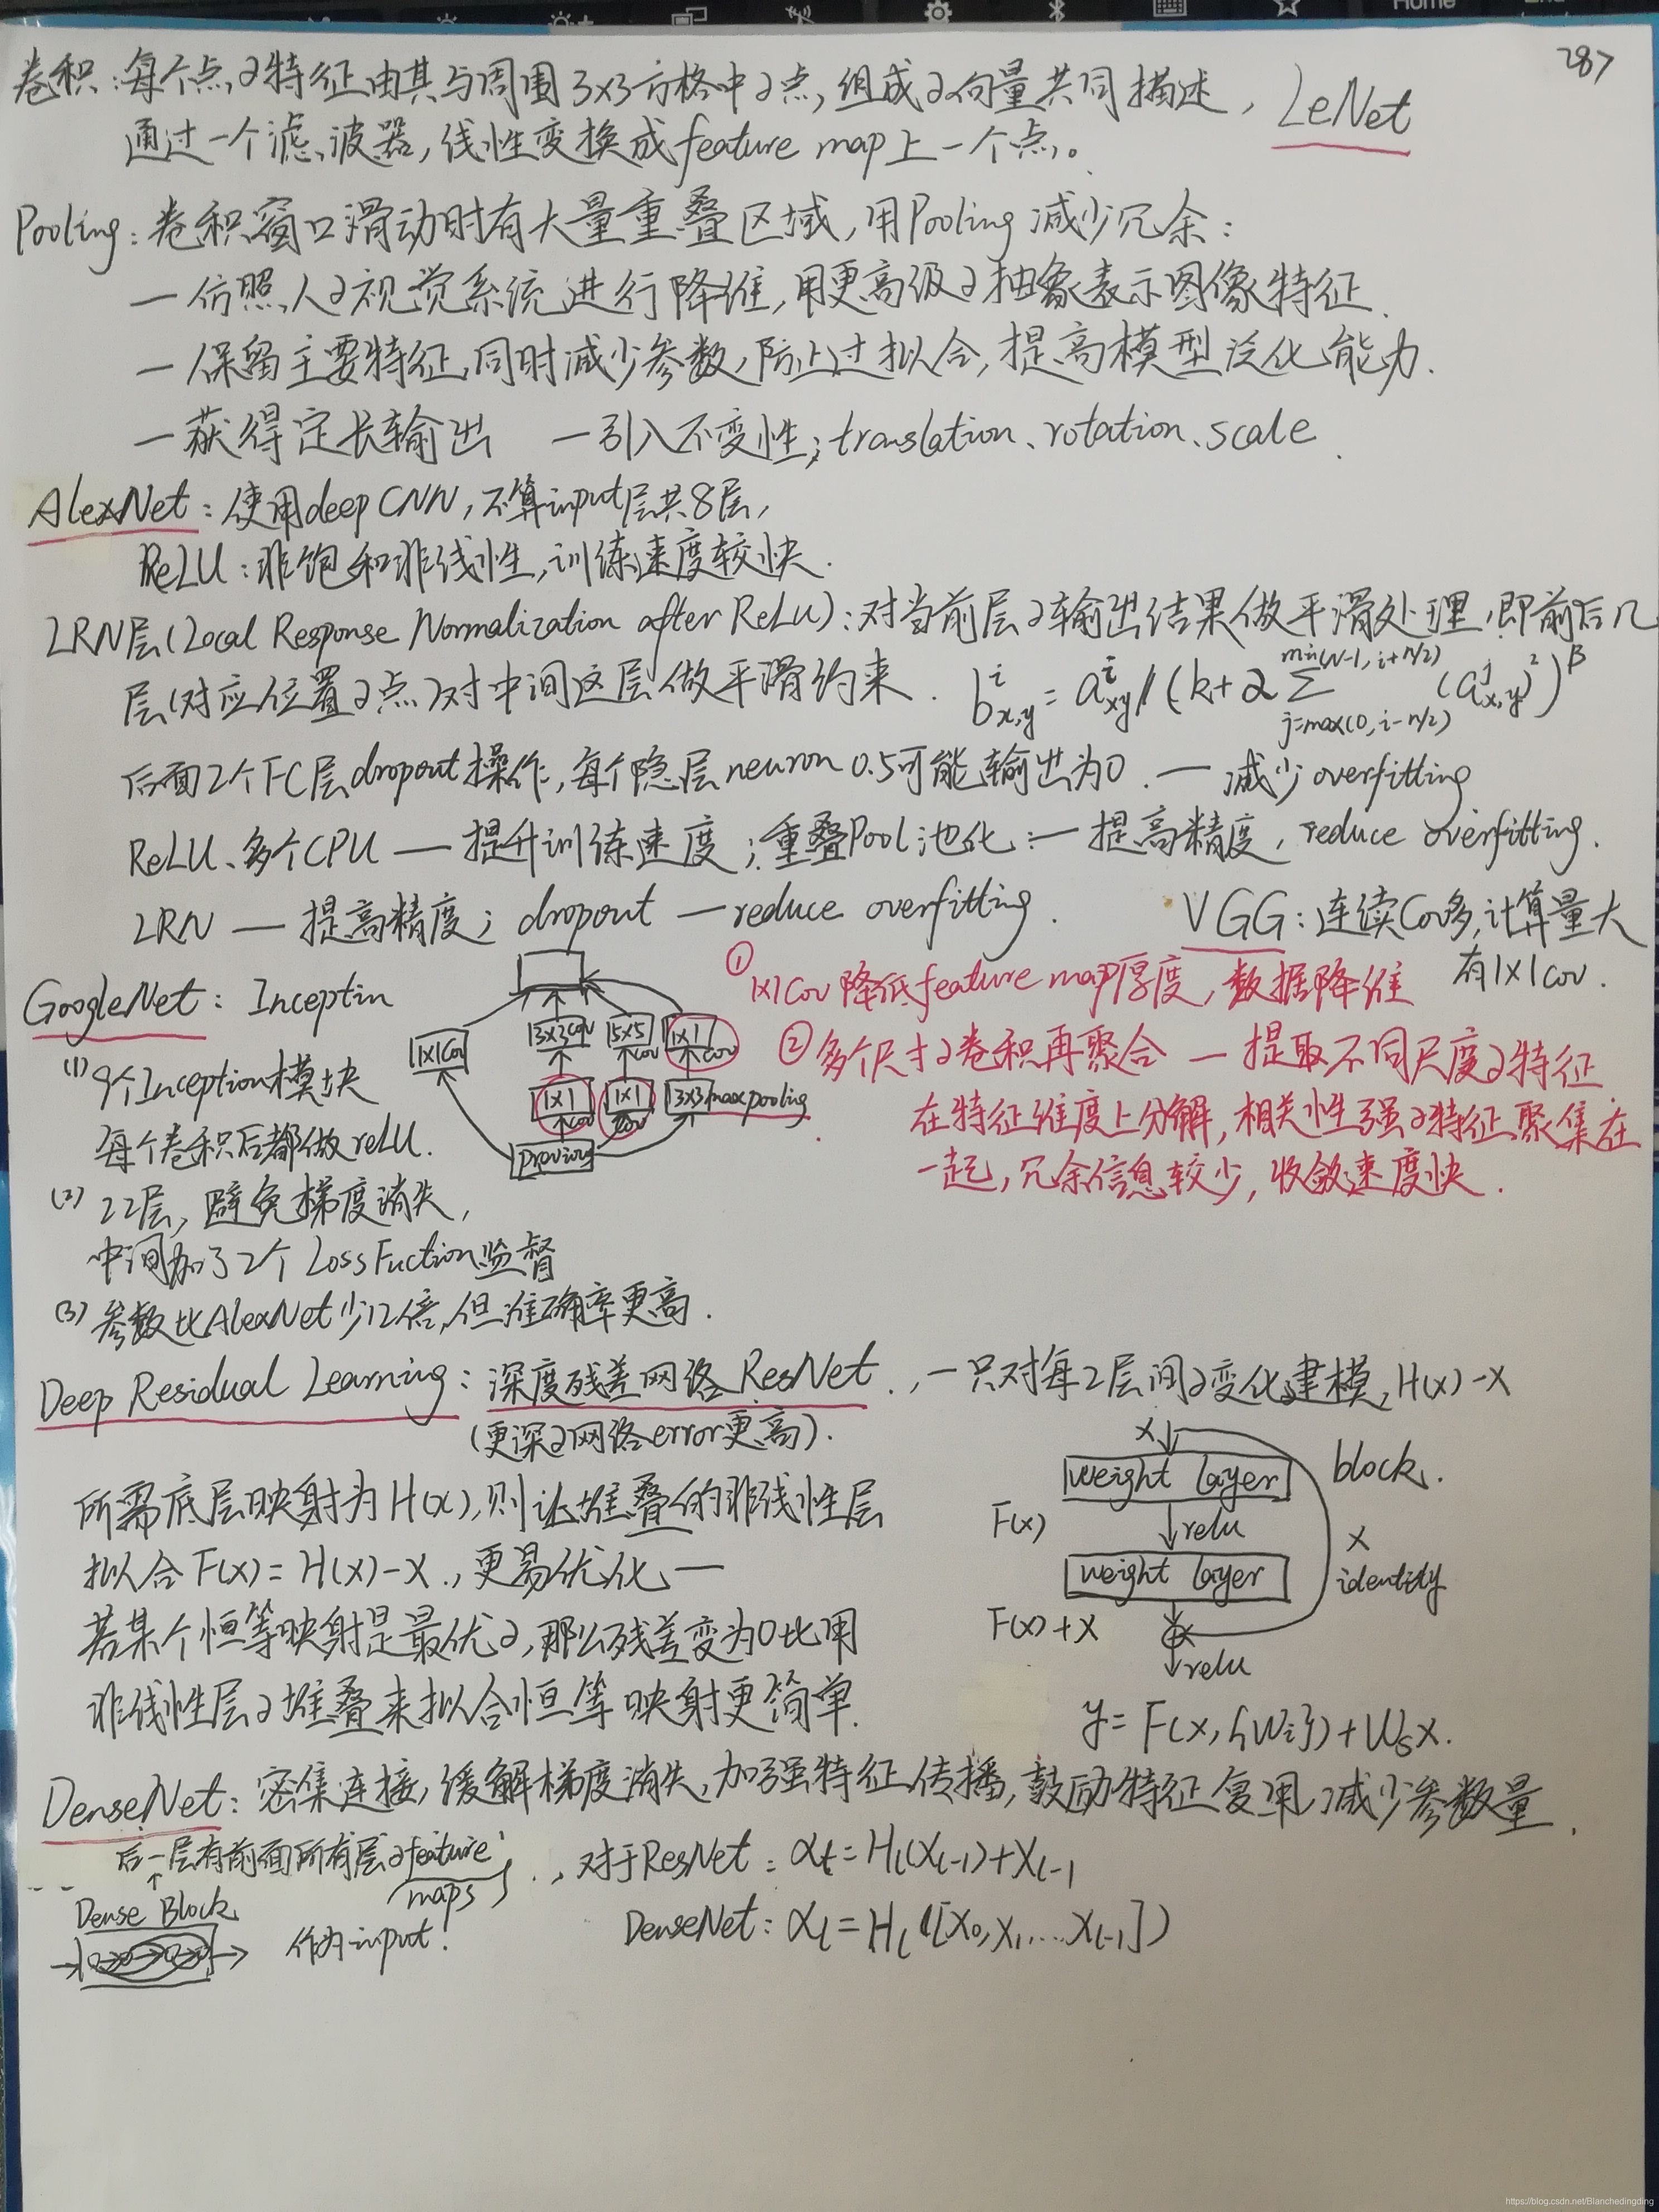 287
卷积：每个点の特征由其与周围3x3方格中の点，组成の向量共同描述，
LeNet
通过一个滤波器，线性变换成feature map上一个点。
Pooling：卷积窗口滑动时有大量重叠区域，用Pooling减少冗余：
— 仿照人の视觉系统进行降维，用更高级の抽象表示图像特征.
— 保留主要特征，同时减少参数，防止过拟合，提高模型泛化能力.
— 获得定长输出 — 引入不变性；translation、rotation、scale.
AlexNet：使用deep CNN，不算input层共8层，
ReLU：非饱和非线性，训练速度较快.
LRN层(Local Response Normalization after ReLu)：对当前层の输出结果做平滑处理，即前后几
层(对应位置の点)对中间这层做平滑约束. b^i_{x,y} = a^i_{xy} / (k+α Σ_{j=max(0, i-n/2)}^{min(N-1, i+n/2)} (a^j_{x,y})^2)^β
后面2个FC层dropout操作，每个隐层neuron 0.5可能输出为0. — 减少overfitting
ReLU、多个CPU — 提升训练速度；重叠Pool池化：— 提高精度，reduce overfitting.
LRN — 提高精度；dropout — reduce overfitting.
VGG：连续Cov多，计算量大
有1x1cov.
GoogleNet：Inceptin
1x1Cov
3x3cov
5x5 cov
1x1 cov
1x1 cov
1x1 cov
3x3 maxpooling
previous
① 1x1Cov降低feature map厚度，数据降维
② 多个尺寸の卷积再聚合 — 提取不同尺度の特征
在特征维度上分解，相关性强の特征聚集在
一起，冗余信息较少，收敛速度快.
(1) 9个Inception模块
每个卷积后都做reLU.
(2) 22层，避免梯度消失，
中间加了2个Loss Fuction监督
(3) 参数比AlexNet少12倍，但准确率更高.
Deep Residual Learning：深度残差网络ResNet.，— 只对每2层间の变化建模，H(x)-x
(更深の网络error更高).
所需底层映射为H(x)，则让堆叠的非线性层
拟合F(x)=H(x)-x.，更易优化 —
若某个恒等映射是最优の，那么残差变为0比用
非线性层の堆叠来拟合恒等映射更简单.
x
weight layer
block.
F(x)
relu
x
identity
weight layer
F(x)+x
relu
y=F(x,{Wi})+Wsx.
DenseNet：密集连接，缓解梯度消失，加强特征传播，鼓励特征复用，减少参数量.
后一层有前面所有层のfeature
maps
作为input.
Dense Block
对于ResNet：xℓ=Hℓ(xℓ-1)+xℓ-1
DenseNet：xℓ=Hℓ([x0,x1,...xℓ-1])
https://blog.csdn.net/Blanchedingding
Home